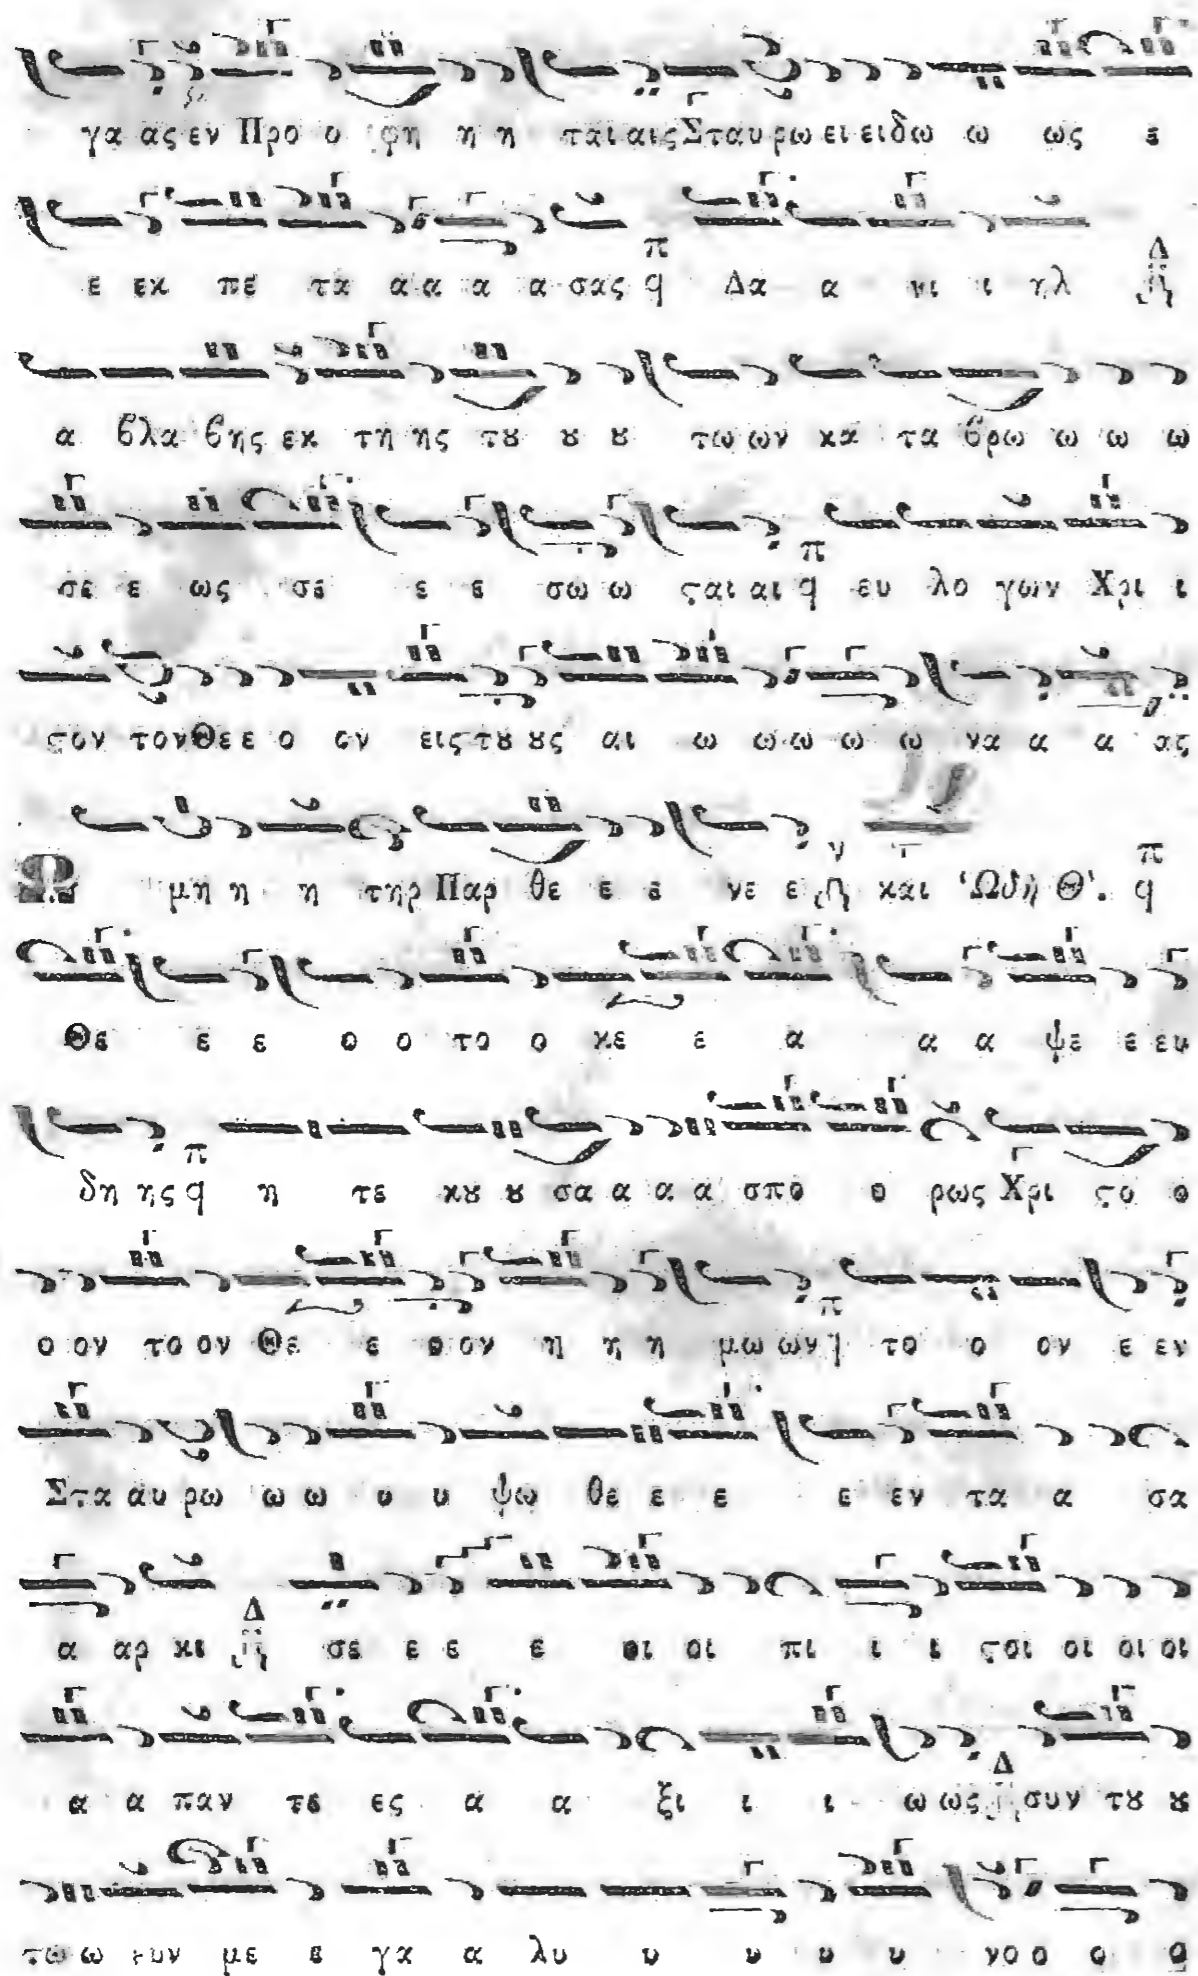 γα ας εν Προ ο φη η η ται αις Σταυ ρω ει ει δω ω ως ε
ε εκ πε τα α α α α σας π q Δα α νι ι ηλ Δ
α βλα βης εκ τη ης τȣ ȣ ȣ τω ων κα τα βρω ω ω ω
σε ε ως σε ε ε σω ω ϛαι αι π q ευ λο γων Χρι ι
ϛον τον Θε ε ο ον εις τȣ ȣς αι ω ω ω ω ω να α α ας
μη η η τηρ Παρ θε ε ε νε ε ν και Ὠδὴ Θ'. π q
Θε ε ε ο ο το ο κε ε α α α ψε ε ευ
δη ης π q η τε κȣ ȣ σα α α α σπο ο ρως Χρι ϛο ο
ο ον το ον Θε ε ο ον η η η μω ων π q το ο ον ε εν
Στα αυ ρω ω ω υ υ ψω θε ε ε ε εν τα α σα
α αρ κι Δ σε ε ε ε οι οι πι ι ι ϛοι οι οι οι
α α παν τε ες α α ξι ι ι ω ως Δ συν τȣ ȣ
τω ω υν με ε γα α λυ υ υ υ υ νο ο ο ο